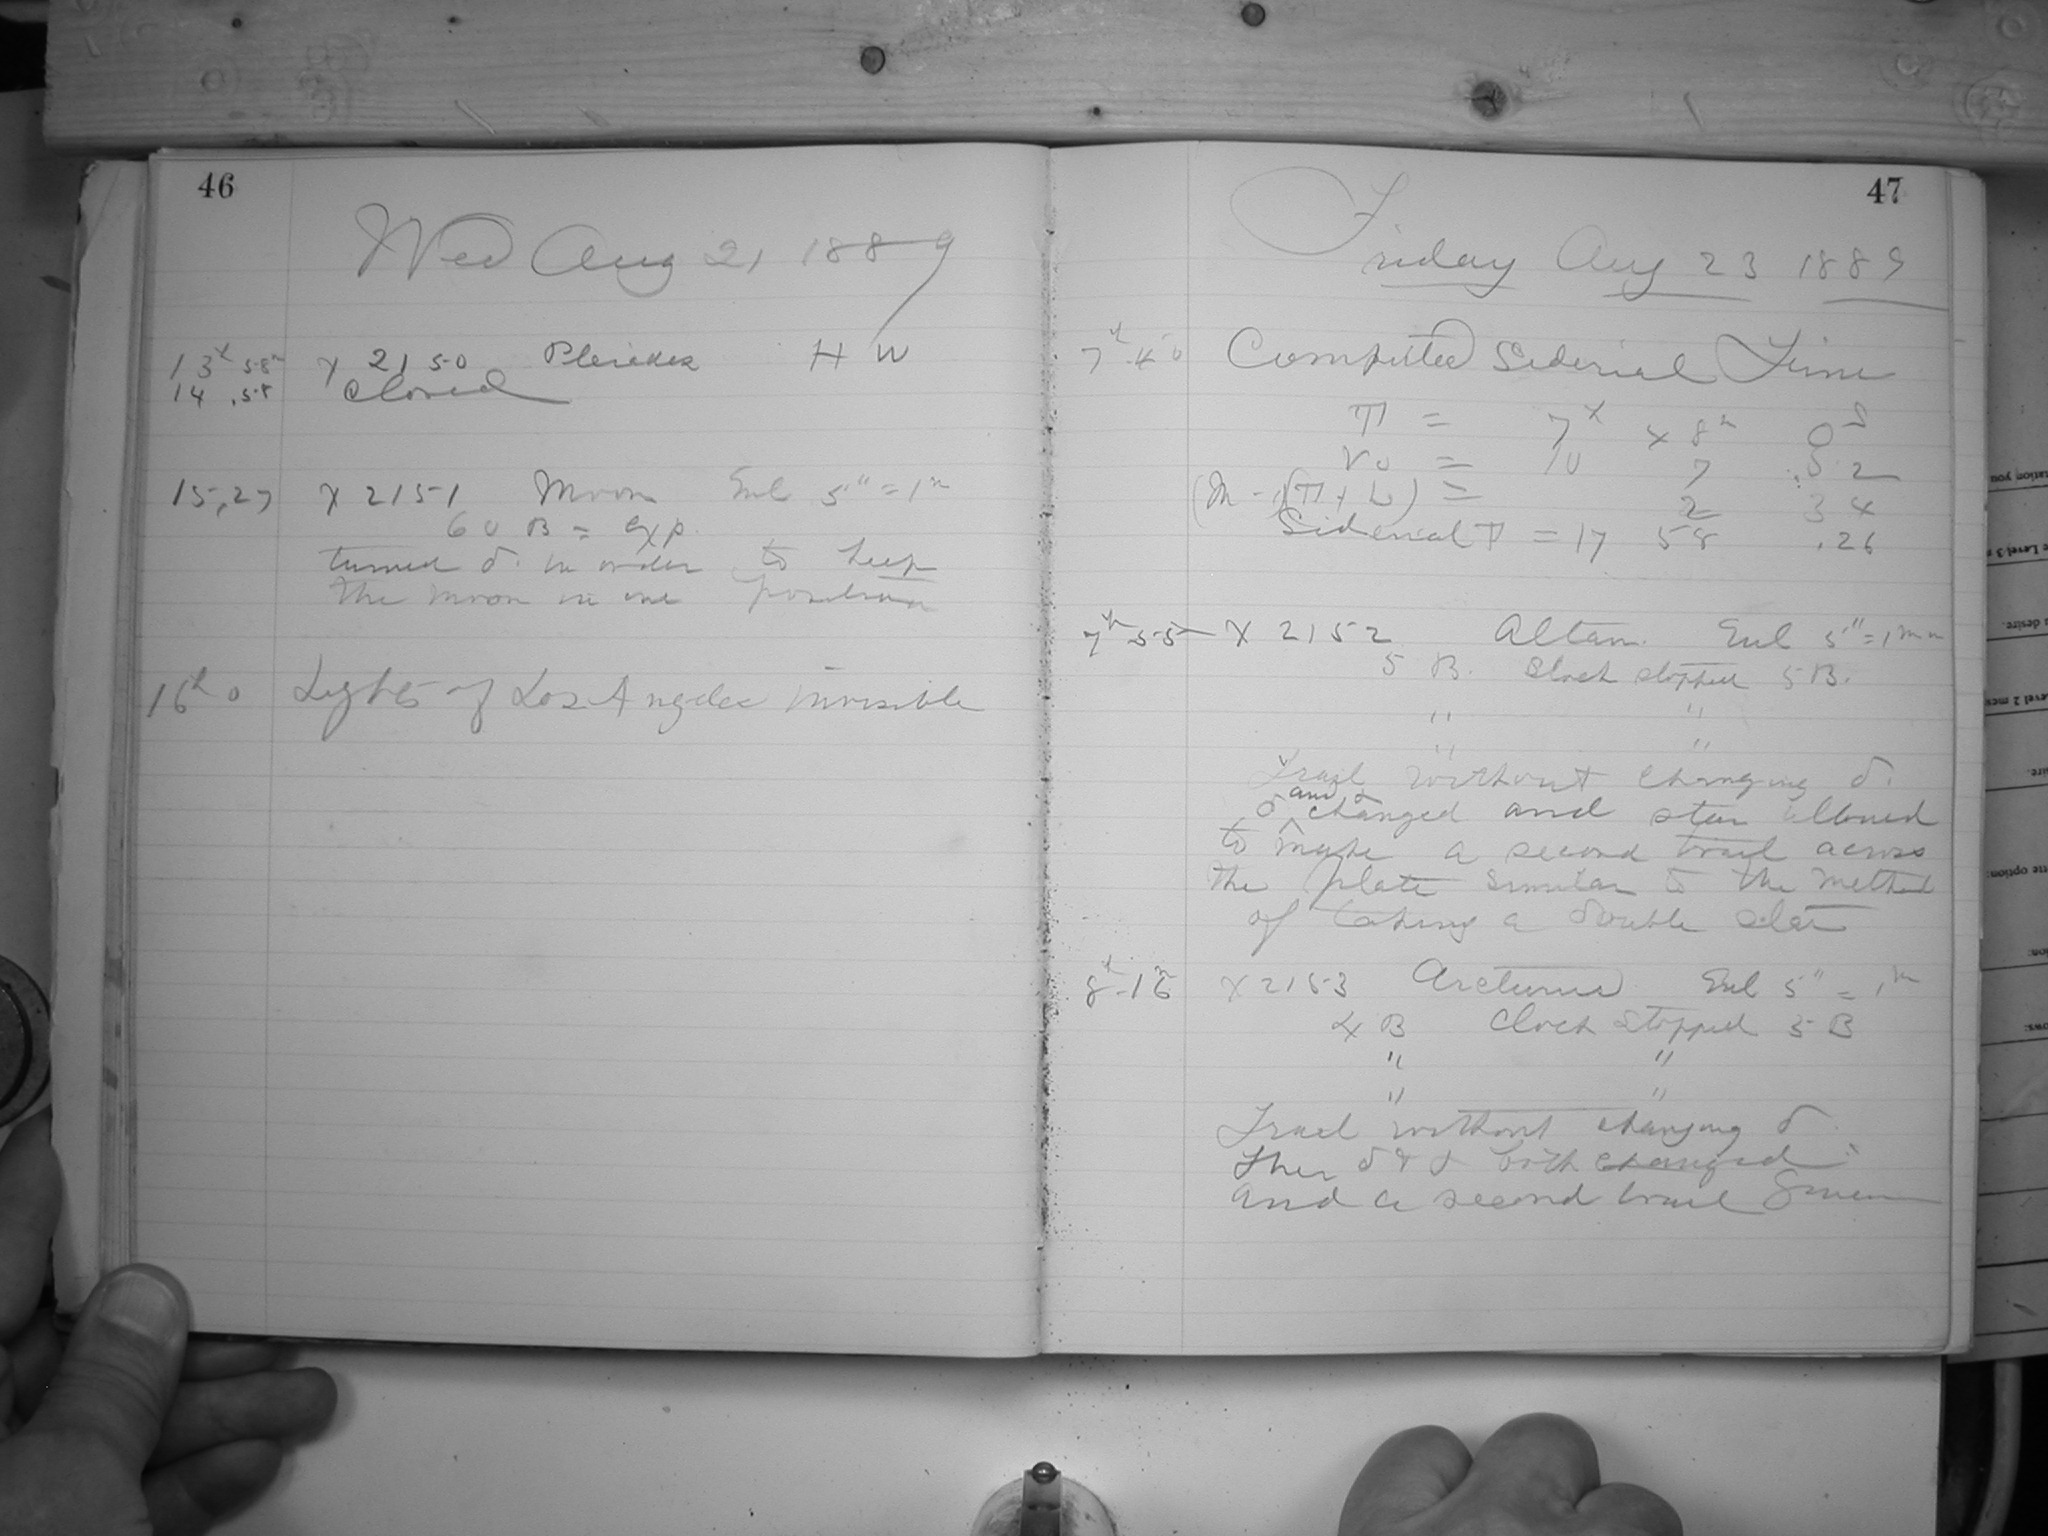 46
Wed Aug 21 1889
13h 58m X 2150 Pleiades H W
14 .58 Closed
15,27 X 2151 Moon Enl 5" = 1m
60 B = exp.
turned δ. in order to keep
the moon in one position
16h 0 Lights of Los Angeles invisible
47
Friday Aug 23 1889
7h 40 Computed Siderial Time
T = 7h 48m 0s
V0 = 10 7 .52
2 34
Siderial T = 17 58 .26
7h 55 X 2152 Altair. Enl 5" = 1mm
5 B. Clock stopped 5 B.
" "
" "
Trail without changing δ.
δ and α changed and star allowed
to make a second trail across
the plate similar to the method
of taking a double star
8h 16m X 2153 Arcturus Enl 5" = 1m
4 B Clock stopped 5 B
" "
" "
Trail without changing δ
Then δ & α both changed
and a second trail given